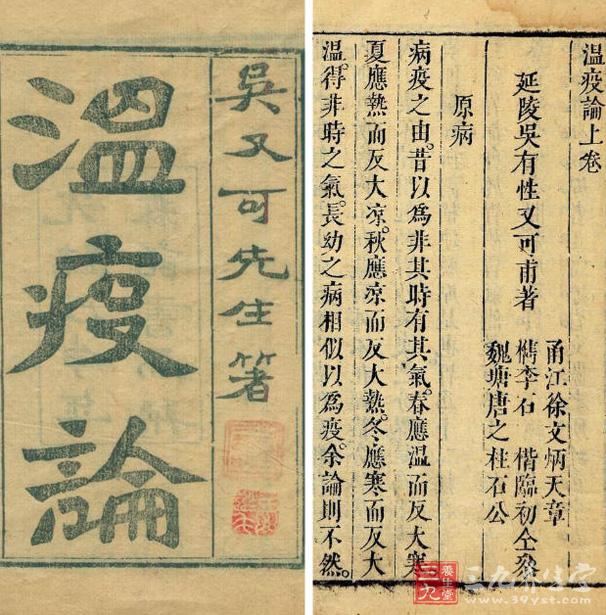 吳又可先生箸
溫疫論
温疫論上卷
延陵吳有性又可甫著
甬江徐文炳天章
檇李石 楷臨初仝叅
魏塘唐之柱石公
原病
病疫之由。昔以爲非其時有其氣。春應温而反大寒
夏應熱而反大凉。秋應凉而反大熱。冬應寒而反大
温。得非時之氣。長幼之病相似以爲疫。余論則不然。
三九養生堂
三九养生堂
www.39yst.com